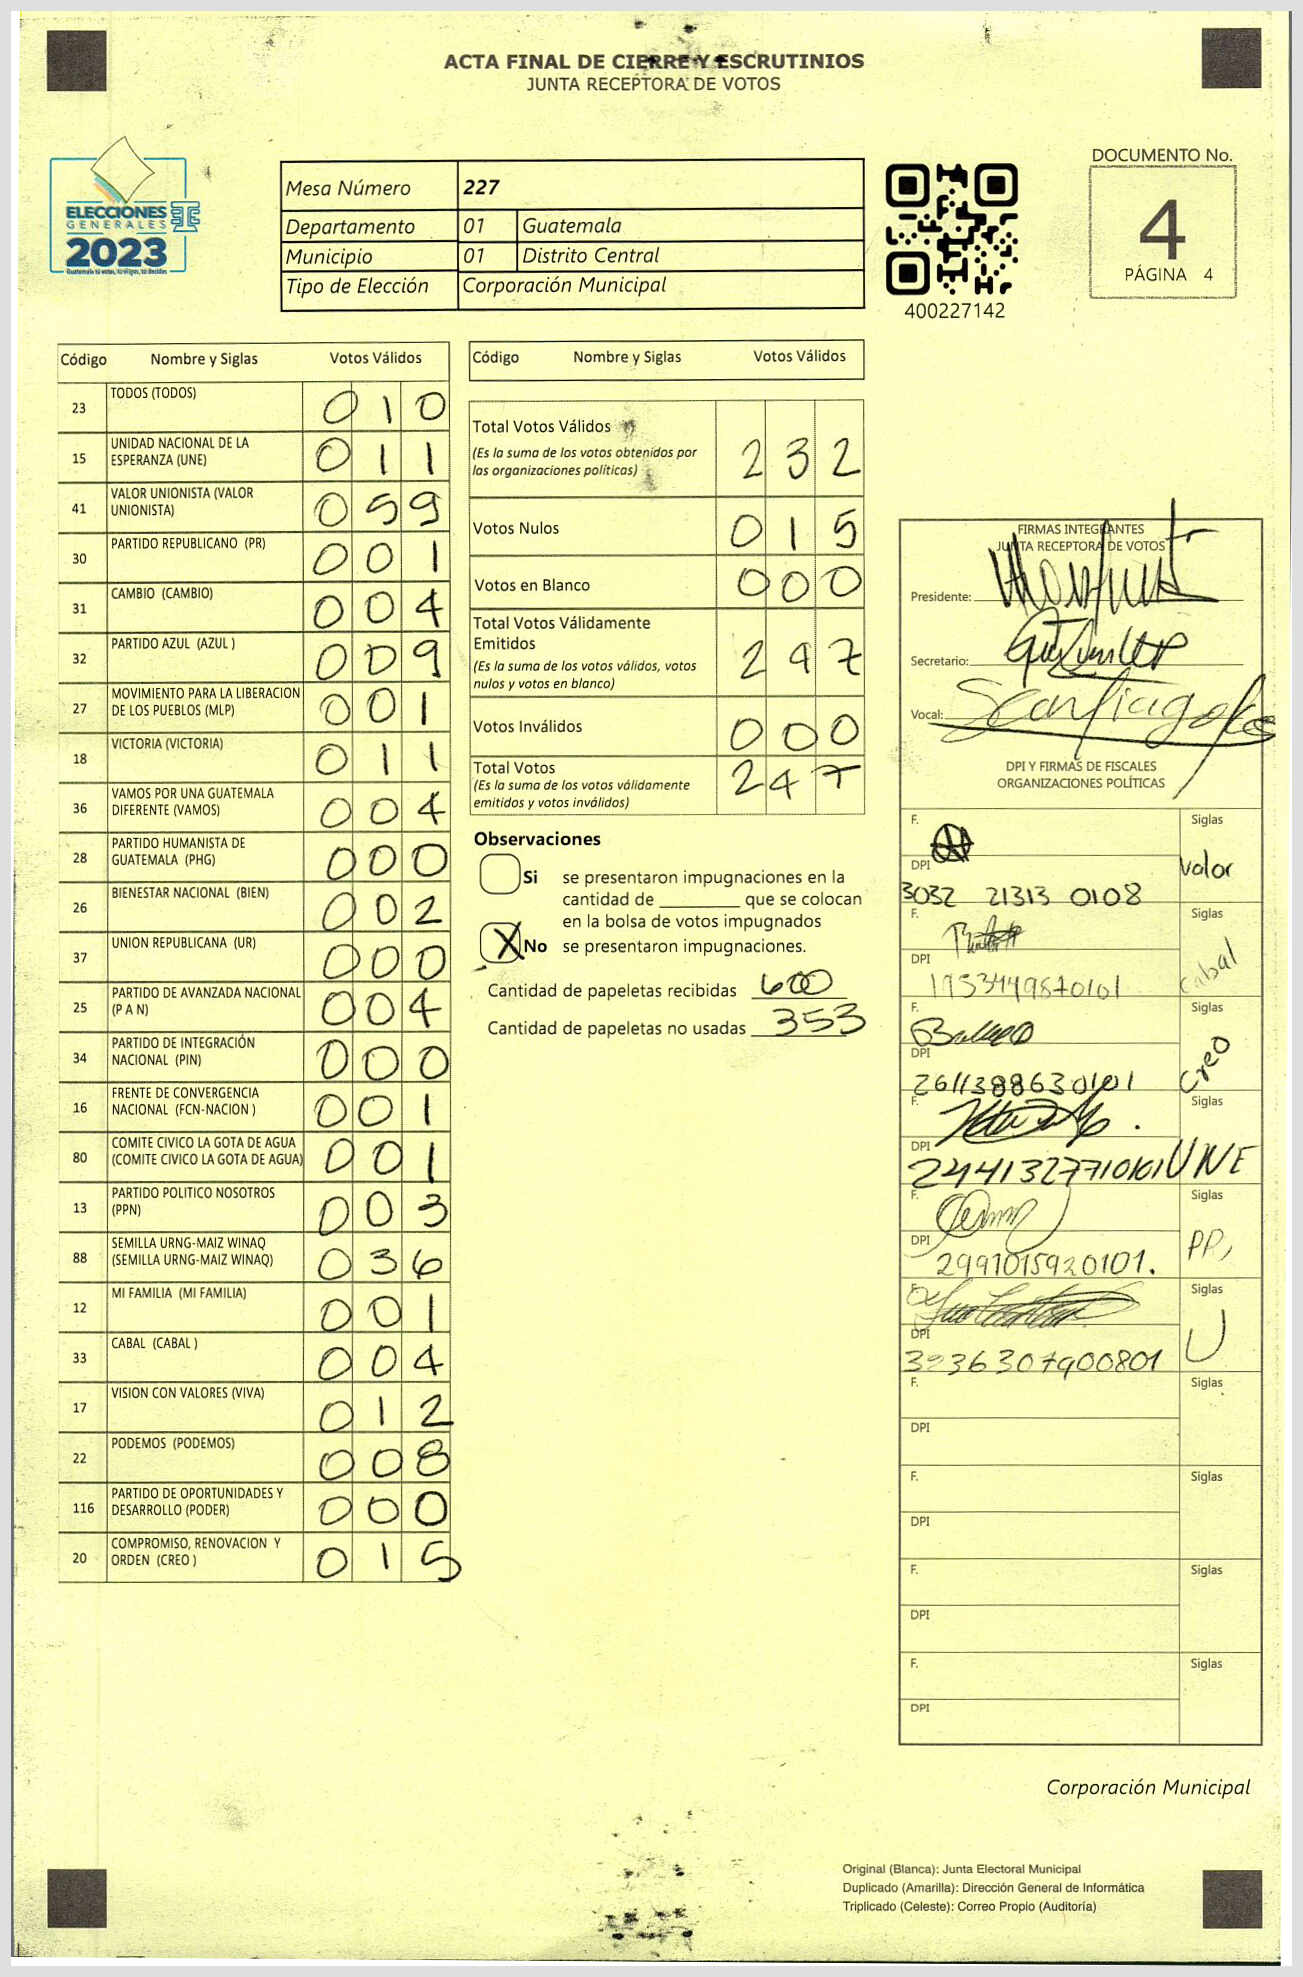 ACTA FINAL DE CIERRE Y ESCRUTINIOS
JUNTA RECEPTORA DE VOTOS
ELECCIONES
GENERALES
2023
Mesa Número 227
Departamento 01 Guatemala
Municipio 01 Distrito Central
Tipo de Elección Corporación Municipal
400227142
DOCUMENTO No.
4
PÁGINA 4
Código Nombre y Siglas Votos Válidos
23 TODOS (TODOS) 0 1 0
15 UNIDAD NACIONAL DE LA
ESPERANZA (UNE) 0 1 1
41 VALOR UNIONISTA (VALOR
UNIONISTA) 0 5 9
30 PARTIDO REPUBLICANO (PR) 0 0 1
31 CAMBIO (CAMBIO) 0 0 4
32 PARTIDO AZUL (AZUL ) 0 0 9
27 MOVIMIENTO PARA LA LIBERACION
DE LOS PUEBLOS (MLP) 0 0 1
18 VICTORIA (VICTORIA) 0 1 1
36 VAMOS POR UNA GUATEMALA
DIFERENTE (VAMOS) 0 0 4
28 PARTIDO HUMANISTA DE
GUATEMALA (PHG) 0 0 0
26 BIENESTAR NACIONAL (BIEN) 0 0 2
37 UNION REPUBLICANA (UR) 0 0 0
25 PARTIDO DE AVANZADA NACIONAL
(P A N) 0 0 4
34 PARTIDO DE INTEGRACIÓN
NACIONAL (PIN) 0 0 0
16 FRENTE DE CONVERGENCIA
NACIONAL (FCN-NACION ) 0 0 1
80 COMITE CIVICO LA GOTA DE AGUA
(COMITE CIVICO LA GOTA DE AGUA) 0 0 1
13 PARTIDO POLITICO NOSOTROS
(PPN) 0 0 3
88 SEMILLA URNG-MAIZ WINAQ
(SEMILLA URNG-MAIZ WINAQ) 0 3 6
12 MI FAMILIA (MI FAMILIA) 0 0 1
33 CABAL (CABAL ) 0 0 4
17 VISION CON VALORES (VIVA) 0 1 2
22 PODEMOS (PODEMOS) 0 0 8
116 PARTIDO DE OPORTUNIDADES Y
DESARROLLO (PODER) 0 0 0
20 COMPROMISO, RENOVACION Y
ORDEN (CREO ) 0 1 5
Código Nombre y Siglas Votos Válidos
Total Votos Válidos
(Es la suma de los votos obtenidos por
las organizaciones políticas) 2 3 2
Votos Nulos 0 1 5
Votos en Blanco 0 0 0
Total Votos Válidamente
Emitidos
(Es la suma de los votos válidos, votos
nulos y votos en blanco) 2 4 7
Votos Inválidos 0 0 0
Total Votos
(Es la suma de los votos válidamente
emitidos y votos inválidos) 2 4 7
Observaciones
Si se presentaron impugnaciones en la
cantidad de ________ que se colocan
en la bolsa de votos impugnados
X No se presentaron impugnaciones.
Cantidad de papeletas recibidas 600
Cantidad de papeletas no usadas 353
FIRMAS INTEGRANTES
JUNTA RECEPTORA DE VOTOS
Presidente:
Secretario:
Vocal:
DPI Y FIRMAS DE FISCALES
ORGANIZACIONES POLÍTICAS
F. Siglas
Valor
DPI
3032 21313 0108
F. Siglas
Cabal
DPI
1953449870101
F. Siglas
Creo
DPI
2611388630101
F. Siglas
DPI
2441327710101 UNE
F. Siglas
DPI
2991015920101.
F. Siglas
U
DPI
3236307900801
F. Siglas
DPI
F. Siglas
DPI
F. Siglas
DPI
F. Siglas
DPI
Corporación Municipal
Original (Blanca): Junta Electoral Municipal
Duplicado (Amarilla): Dirección General de Informática
Triplicado (Celeste): Correo Propio (Auditoría)